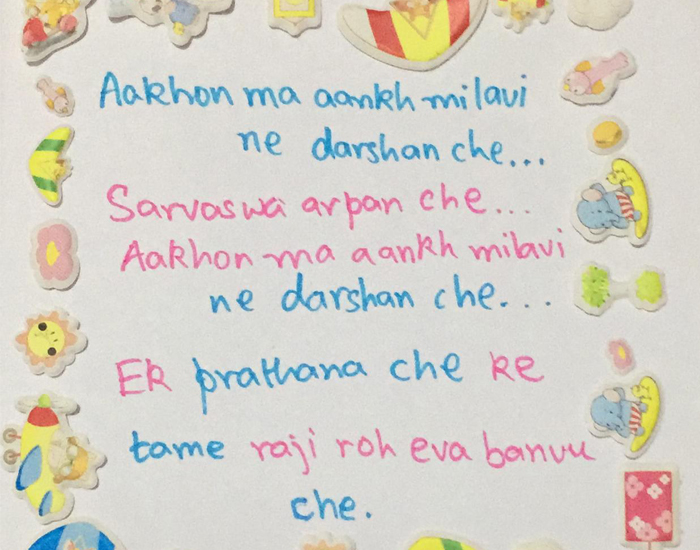 Aakhon ma aankh milavi
ne darshan che...
Sarvaswa arpan che...
Aakhon ma aankh milavi
ne darshan che...
Ek prathana che ke
tame raji roh eva banvu
che.